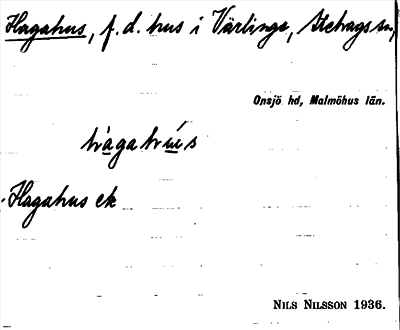 Hagahus, f. d. hus i Värlinge, Stehags sn,
Onsjö hd, Malmöhus län.
hàgahu̇́s
Hagahus ek
NILS NILSSON 1936.